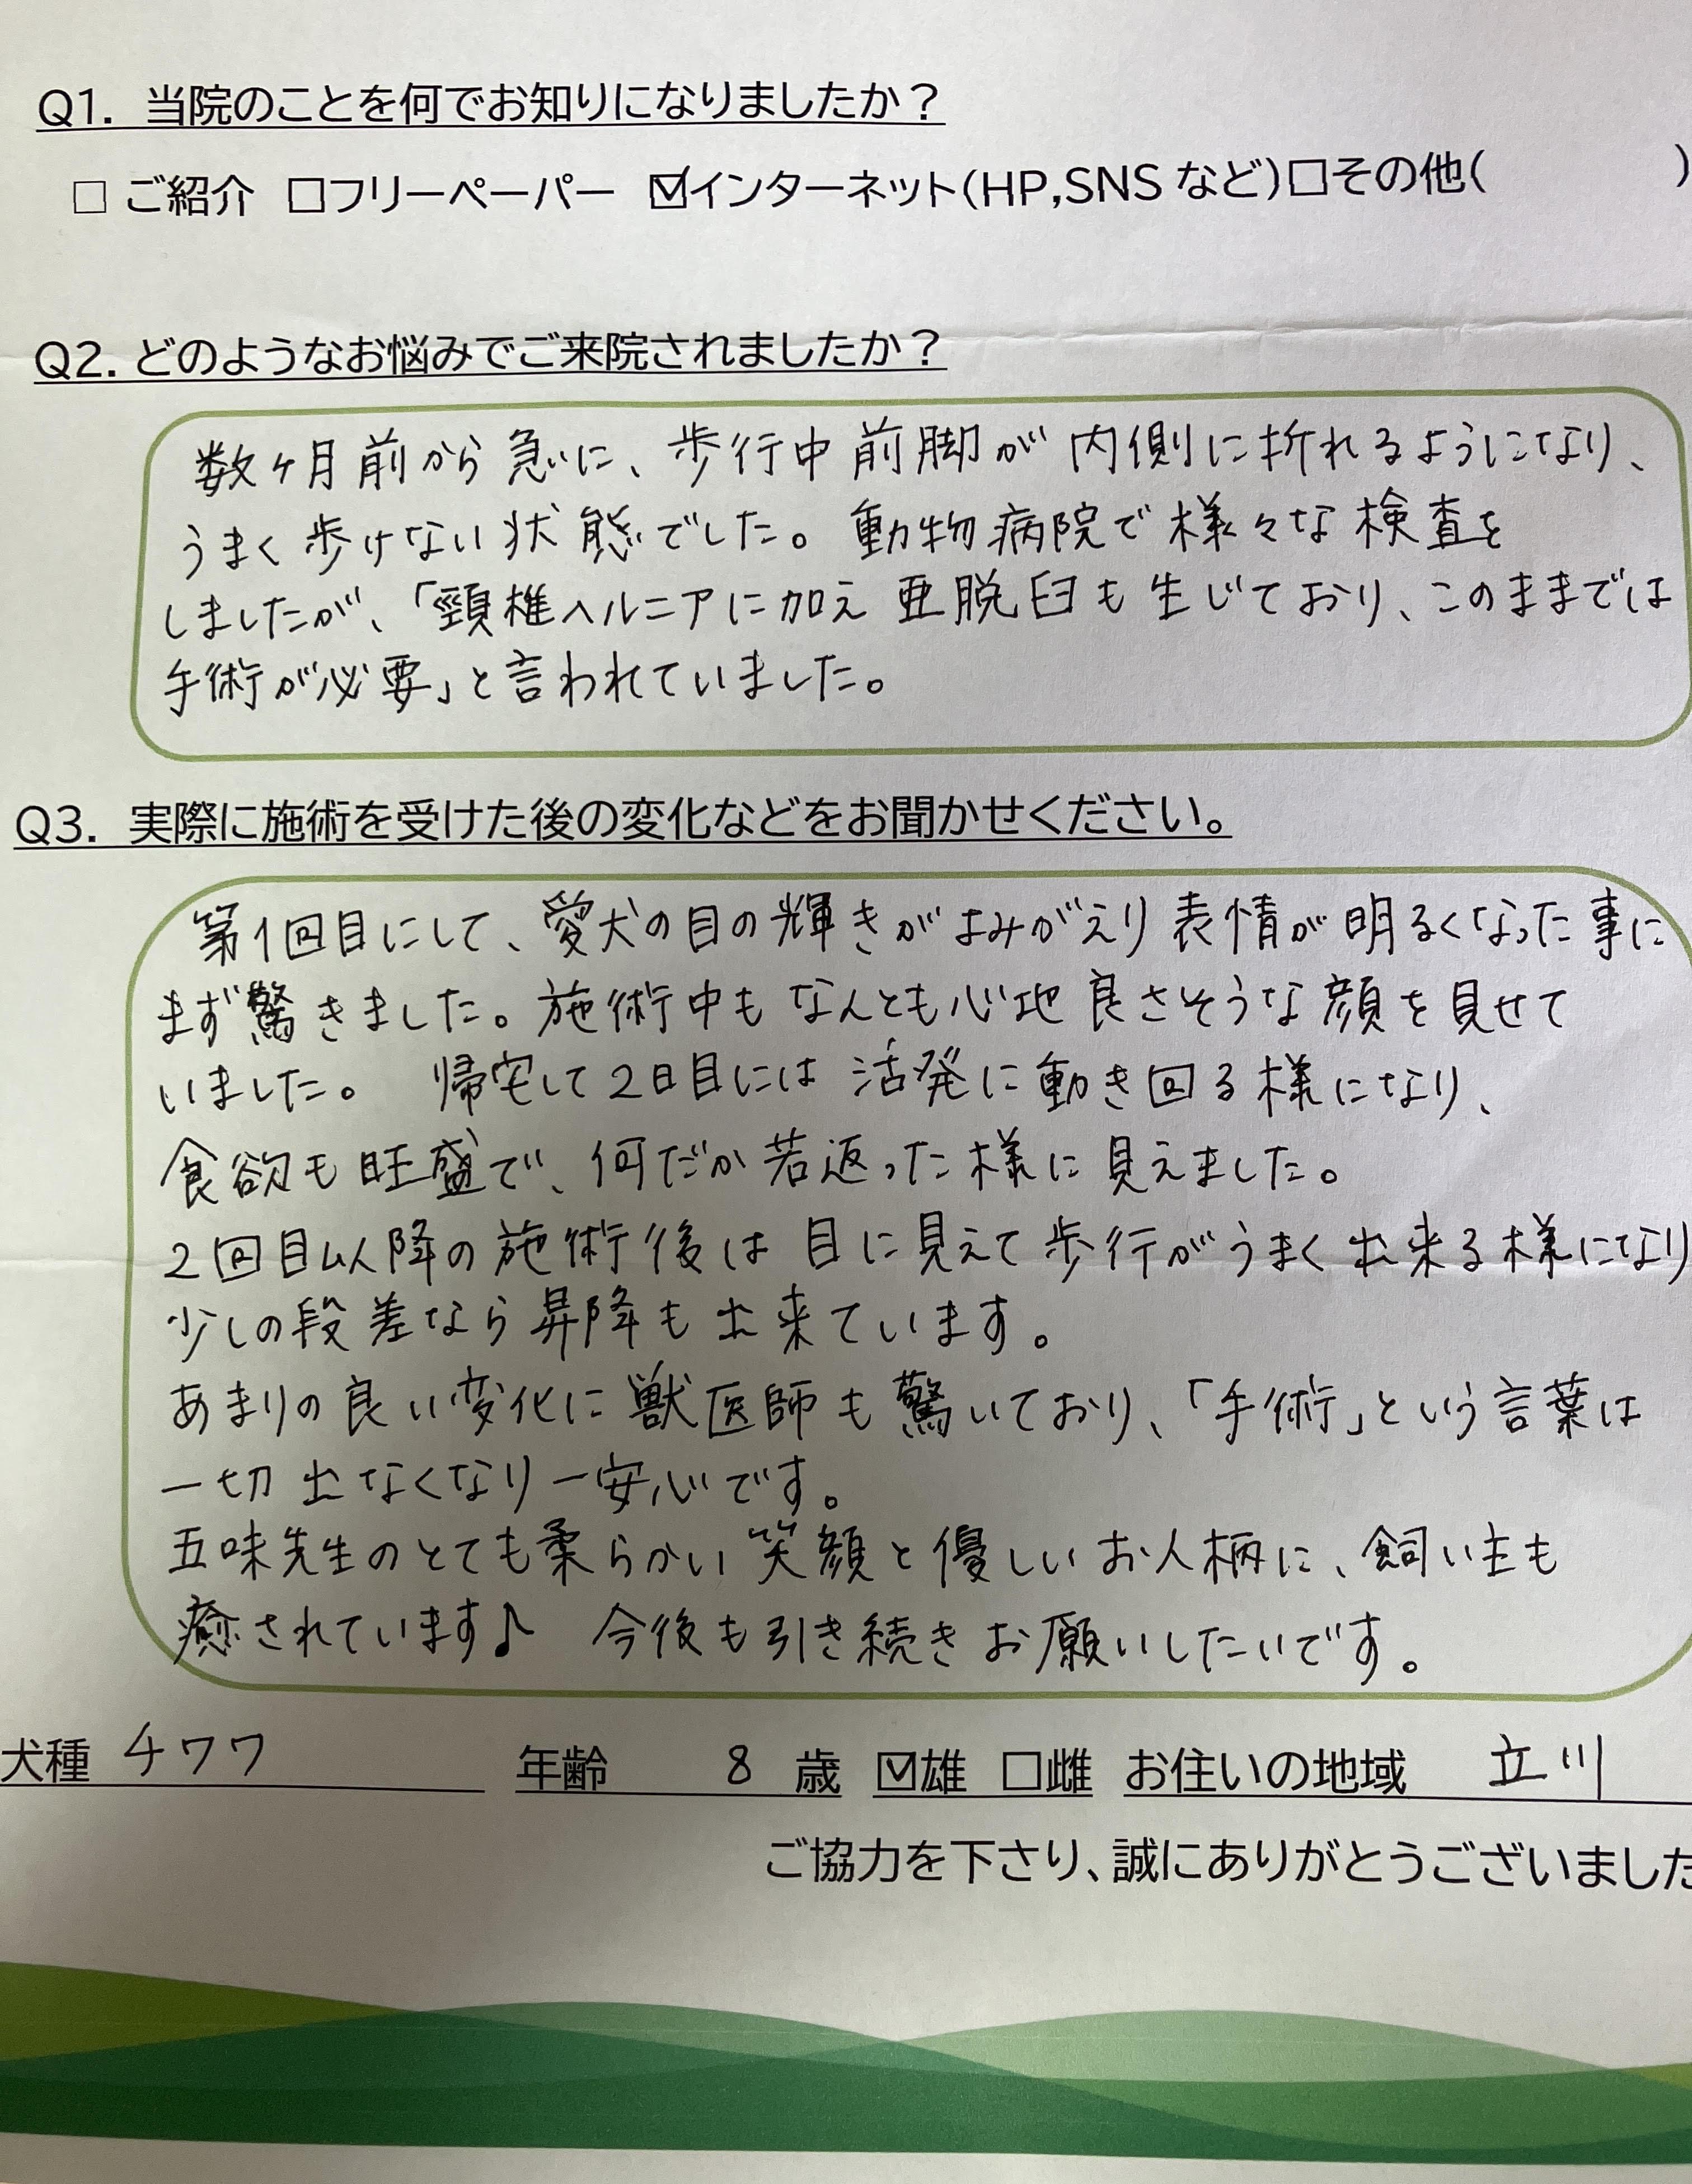 Q1. 当院のことを何でお知りになりましたか？
□ ご紹介 □フリーペーパー ☑インターネット(HP,SNS など)□その他( )
Q2. どのようなお悩みでご来院されましたか？
数ヶ月前から急に、歩行中前脚が内側に折れるようになり、
うまく歩けない状態でした。動物病院で様々な検査を
しましたが、「頸椎ヘルニアに加え亜脱臼も生じており、このままでは
手術が必要」と言われていました。
Q3. 実際に施術を受けた後の変化などをお聞かせください。
第1回目にして、愛犬の目の輝きがよみがえり表情が明るくなった事に
まず驚きました。施術中もなんとも心地良さそうな顔を見せて
いました。 帰宅して2日目には活発に動き回る様になり、
食欲も旺盛で、何だか若返った様に見えました。
2回目以降の施術後は目に見えて歩行がうまく出来る様になり
少しの段差なら昇降も出来ています。
あまりの良い変化に獣医師も驚いており、「手術」という言葉は
一切出なくなり一安心です。
五味先生のとても柔らかい笑顔と優しいお人柄に、飼い主も
癒されています♪ 今後も引き続きお願いしたいです。
犬種 チワワ 年齢 8 歳 ☑雄 □雌 お住いの地域 立川
ご協力を下さり、誠にありがとうございました